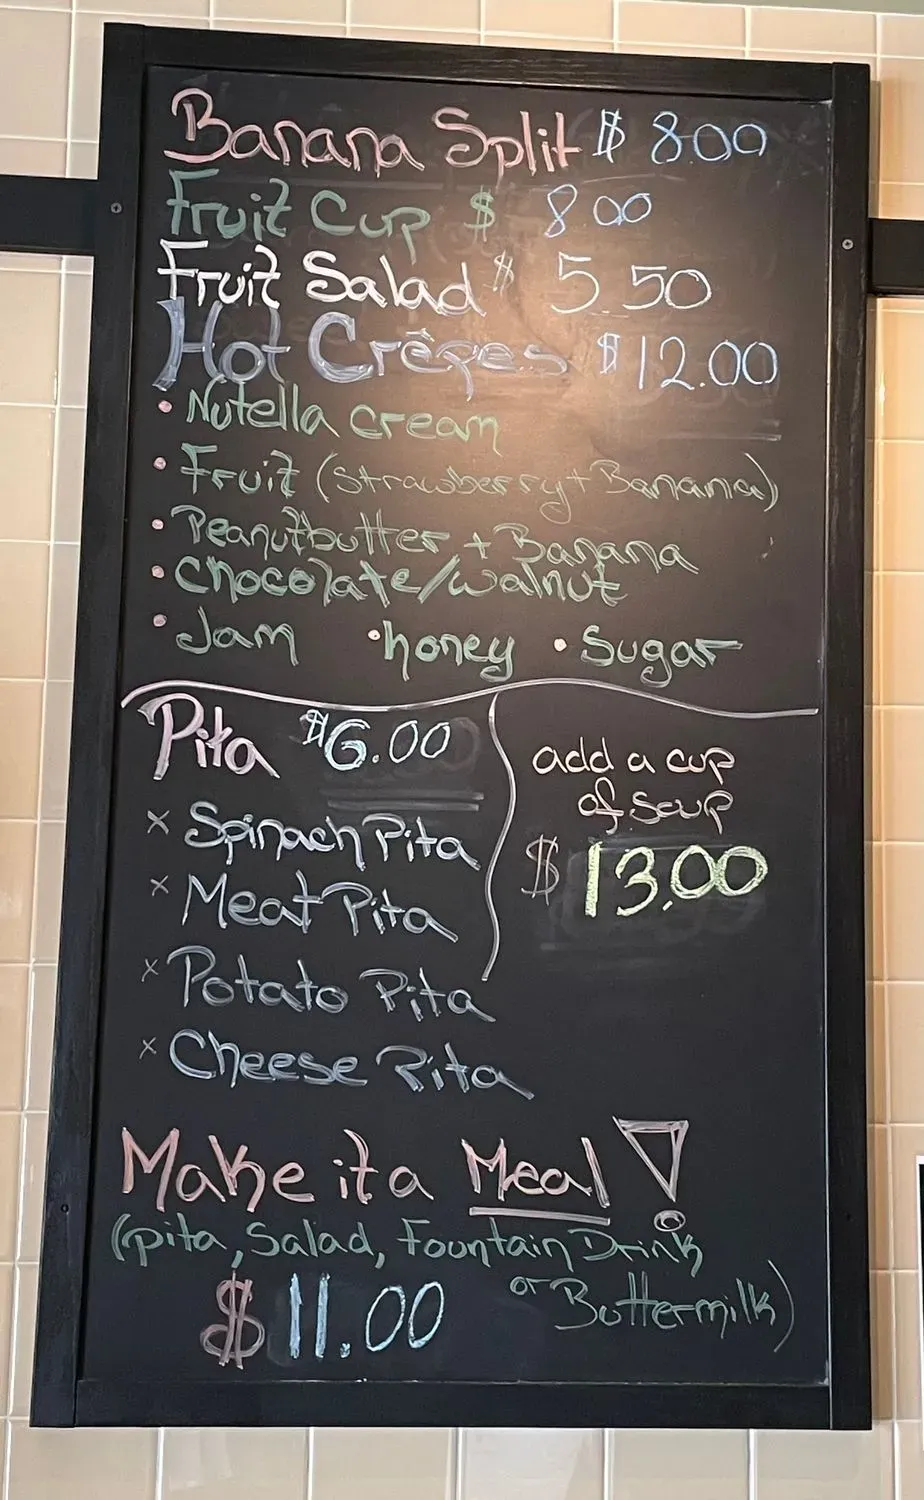 Banana Split $ 8.00
Fruit Cup $ 8 00
Fruit Salad $ 5 50
Hot Crêpes $12.00
• Nutella cream
• Fruit (strawberry + Banana)
• Peanutbutter + Banana
• Chocolate/walnut
• Jam • honey • Sugar
Pita $6.00
x Spinach Pita
x Meat Pita
x Potato Pita
x Cheese Pita
add a cup
of soup
$ 13.00
Make it a Meal!
(pita, Salad, Fountain Drink
or Buttermilk)
$ 11.00